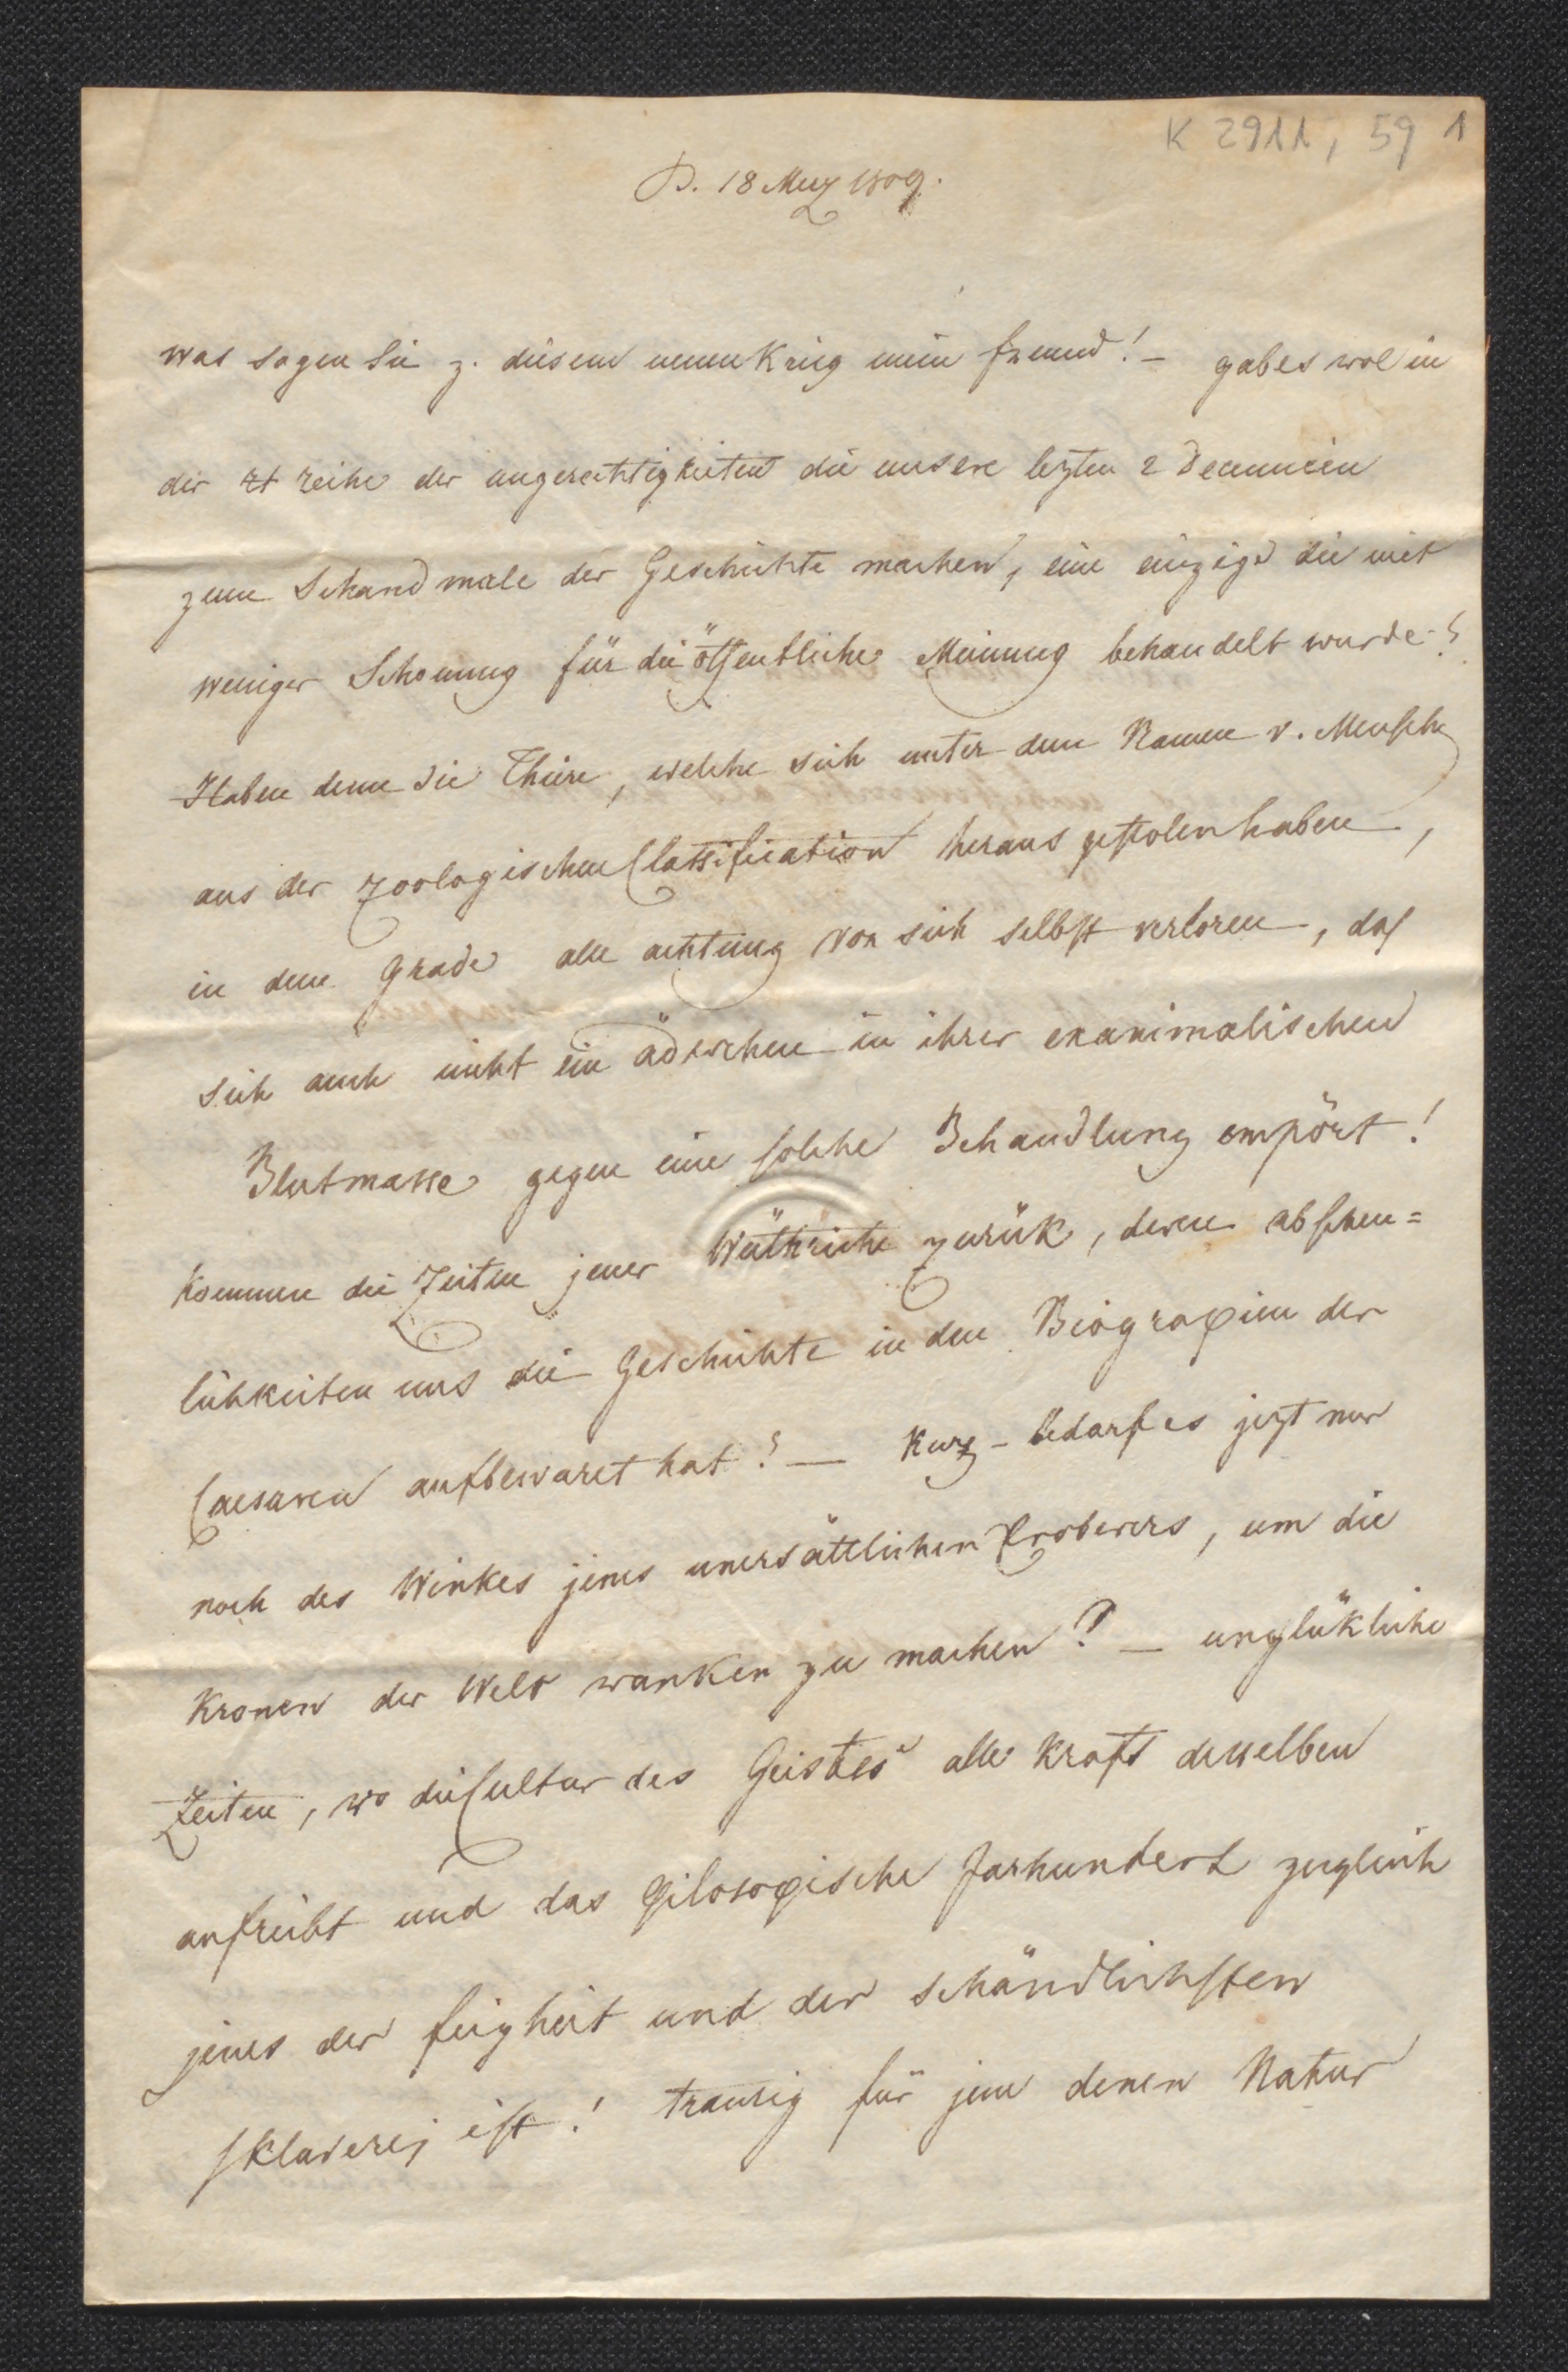 K 2911, 59 1
D. 18 May 1809.
was sagen Sie z. diesem neuen Krieg mein freund! – gab es wol in
der reihe der ungerechtigkeiten die unsere lezten 2 Decennien
zum Schandmale der Geschichte machen, eine einzige die mit
weniger Schonung für die öffentliche Meinung behandelt wurde?
Haben denn die Thiere, welche sich unter dem Namen v. Mensche
aus der zoologischen Classification heraus gestolen haben,
in dem grade alle achtung von sich selbst verloren, daß
sich auch nicht ein äderchen in ihrer exanimalischen
Blutmasse gegen eine solche Behandlung empört!
kommen die Zeiten jener Wüthriche zurük, deren abscheu=
lichkeiten uns die Geschichte in den Biograφien der
Caesaren aufbewaret hat? – kurz – bedarf es jezt nur
noch des Winkes jenes unersättlichen Eroberers, um die
kronen der Welt wanken zu machen? – unglükliche
Zeiten, wo die Cultur des Geistes alle kraft desselben
aufreibt und das φilosoφische Jarhundert zugleich
jenes der feigheit und der schändlichsten
sklaverej ist! traurig für jene denen Natur